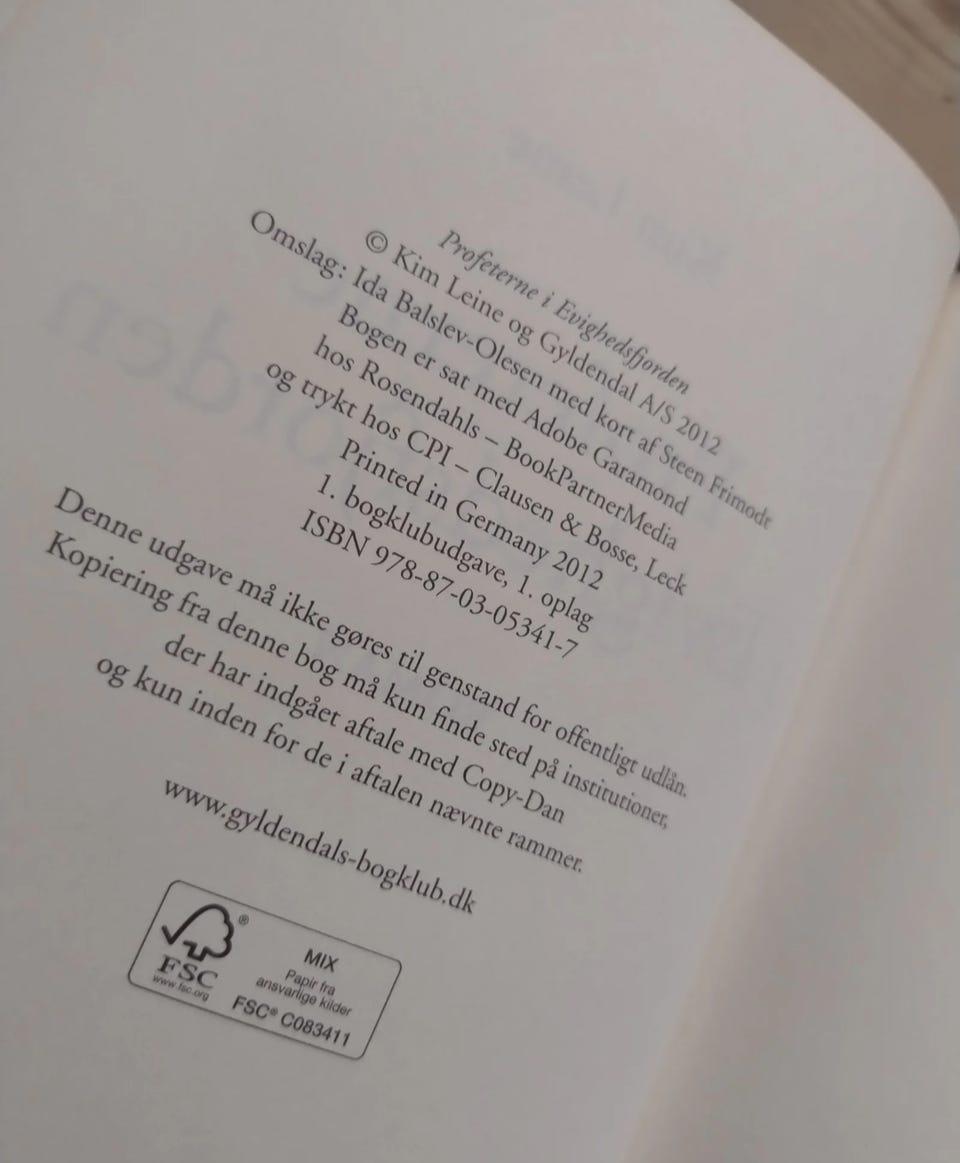 Profeterne i Evighedsfjorden
© Kim Leine og Gyldendal A/S 2012
Omslag: Ida Balslev-Olesen med kort af Steen Frimodt
Bogen er sat med Adobe Garamond
hos Rosendahls – BookPartnerMedia
og trykt hos CPI – Clausen & Bosse, Leck
Printed in Germany 2012
1. bogklubudgave, 1. oplag
ISBN 978-87-03-05341-7
Denne udgave må ikke gøres til genstand for offentligt udlån.
Kopiering fra denne bog må kun finde sted på institutioner,
der har indgået aftale med Copy-Dan
og kun inden for de i aftalen nævnte rammer.
www.gyldendals-bogklub.dk
®
FSC
www.fsc.org
MIX
Papir fra
ansvarlige kilder
FSC® C083411